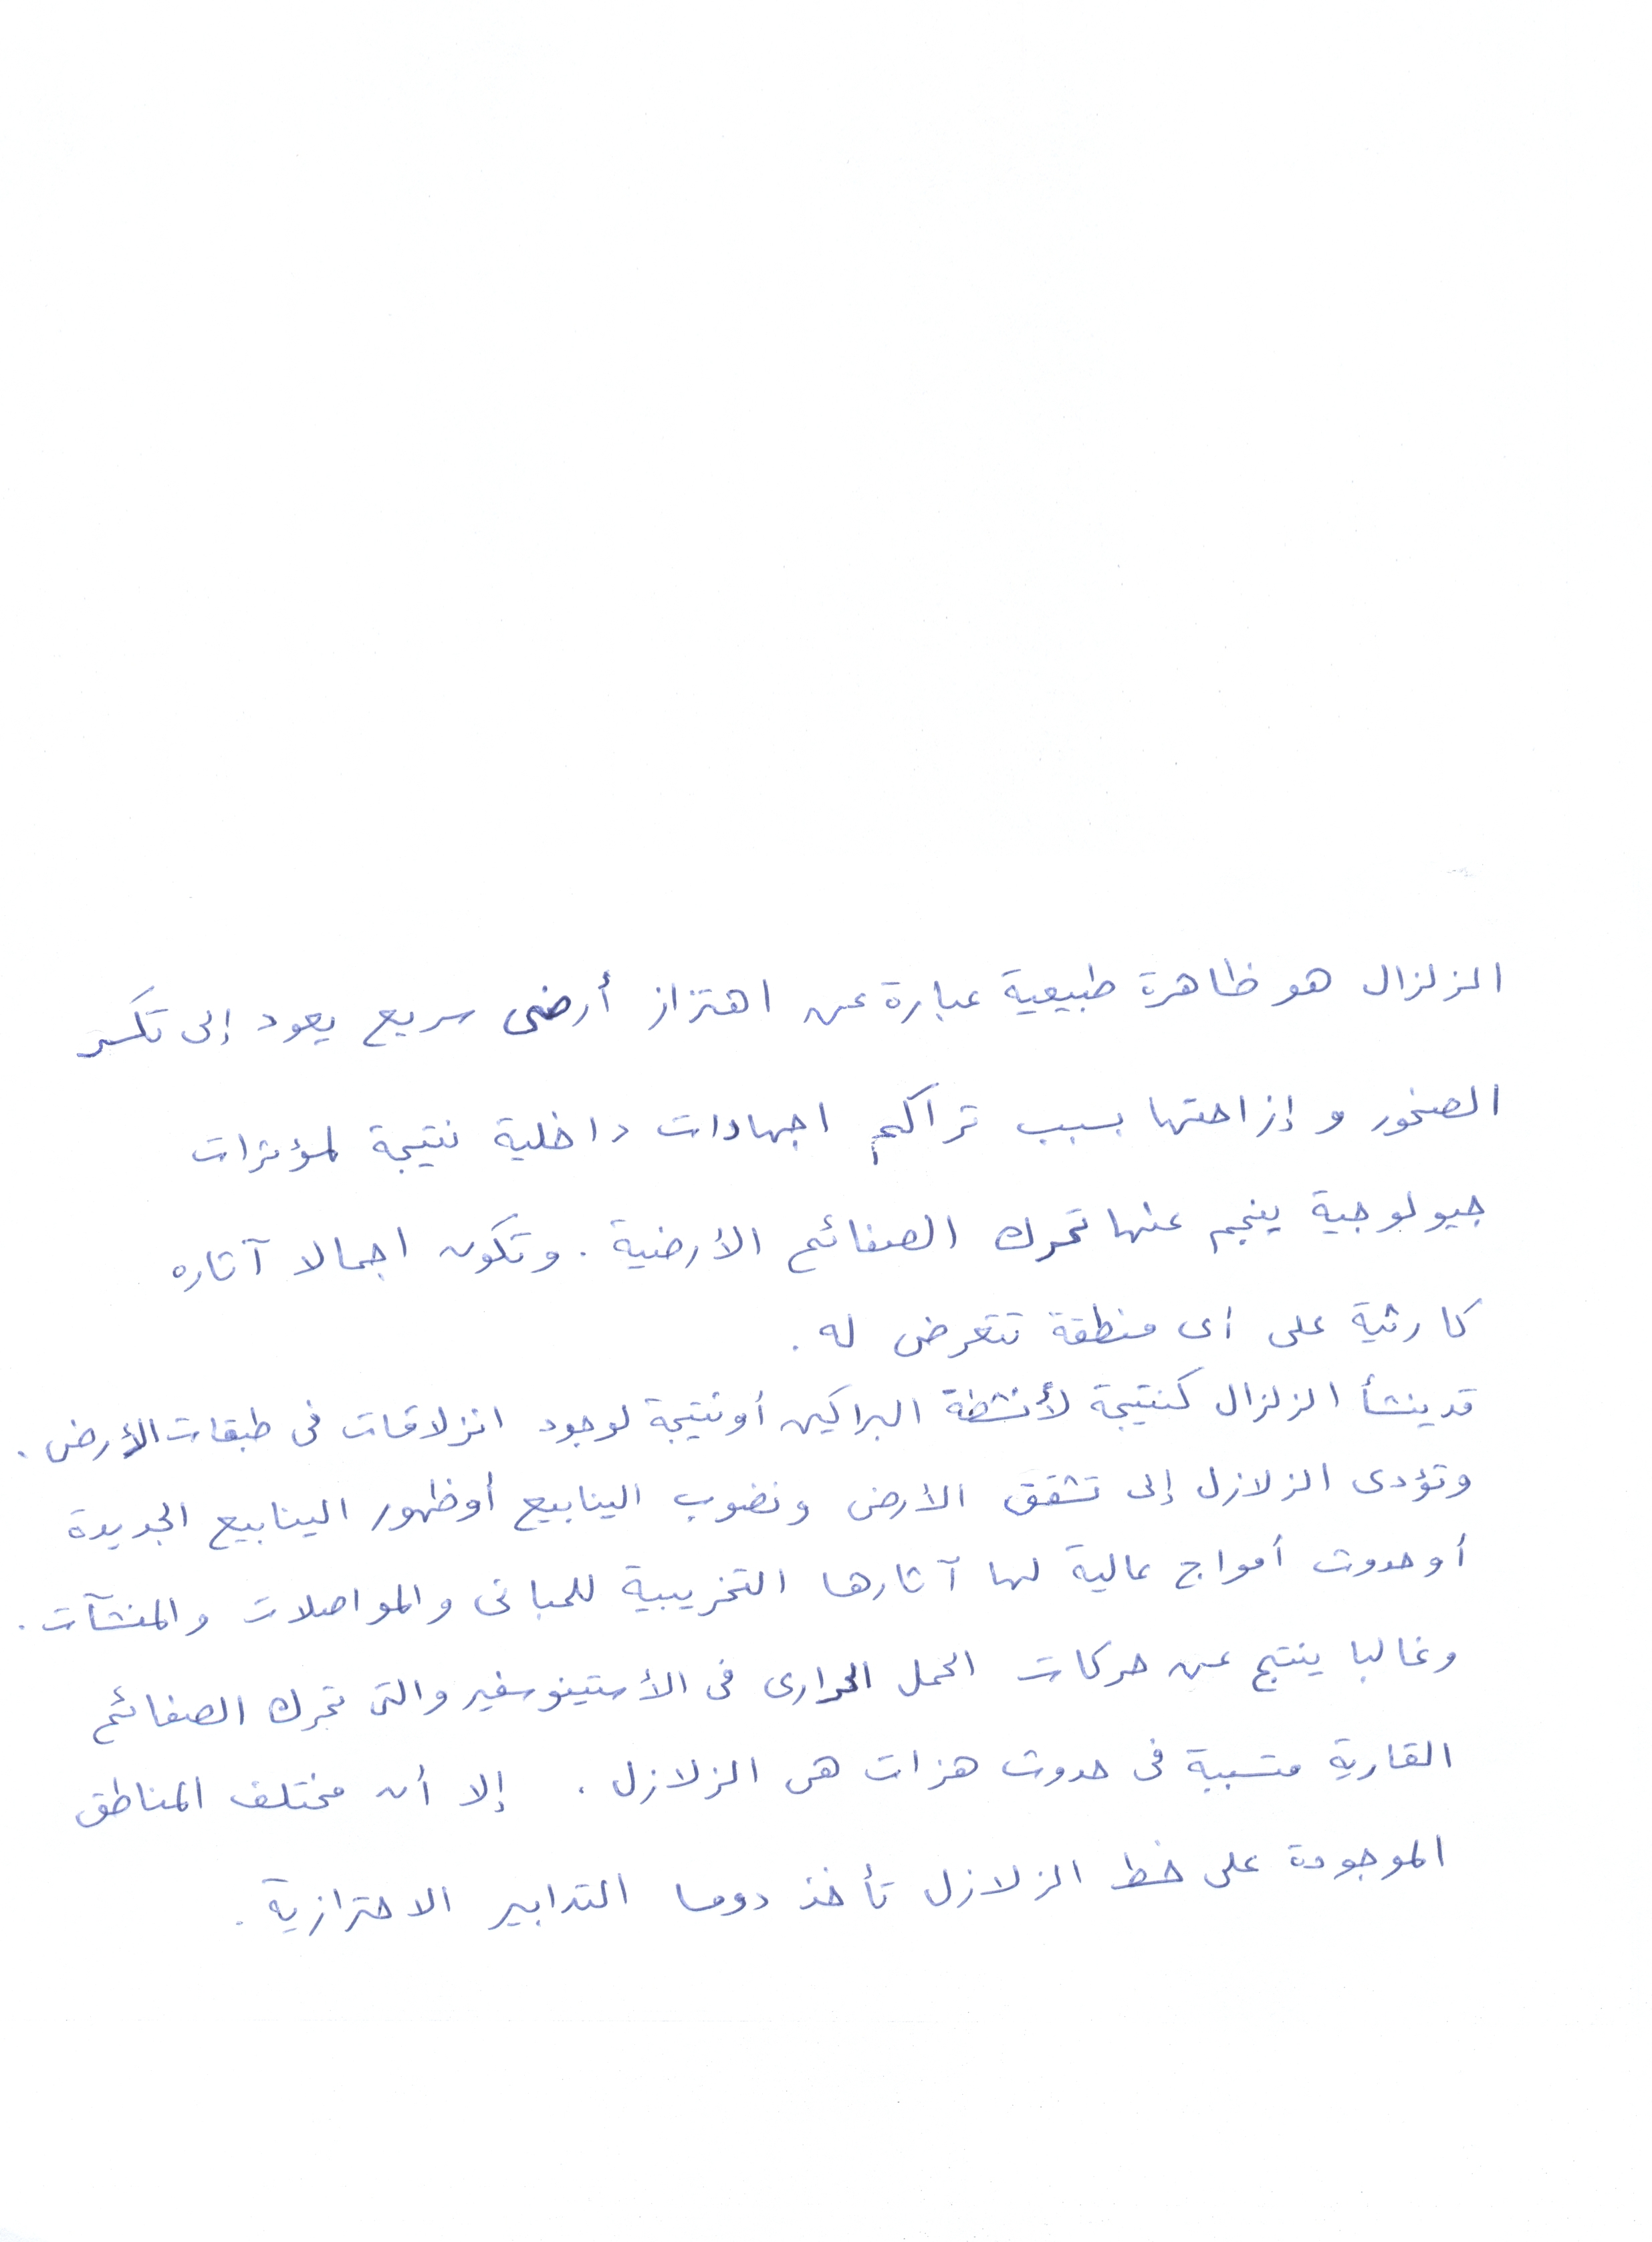 الزلزال هو ظاهرة طبيعية عبارة عن اهتزاز أرضى سريع يعود إلى تكسر
الصخور و إزاحتها بسبب تراكم اجهادات داخلية نتيجة لمؤثرات
جيولوجية ينجم عنها تحرك الصفائح الأرضية . وتكون اجمالا آثاره
كارثية على اى منطقة تتعرض له .
قد ينشأ الزلزال كنتيجة لأنشطة البراكين أو نتيجة لوجود انزلاقات فى طبقات الأرض .
وتؤدى الزلازل إلى تشقق الأرض ونضوب الينابيع أو ظهور الينابيع الجديدة
أو حدوث أمواج عالية لها آثارها التخريبية للمبانى والمواصلات والمنشآت .
وغالبا ينتج عن حركات الحمل الحرارى فى الأستينوسفير والتى تحرك الصفائح
القارية متسببة فى حدوث هزات هى الزلازل . إلا أن مختلف المناطق
الموجودة على خط الزلازل تأخذ دوما التدابير الاحترازية .